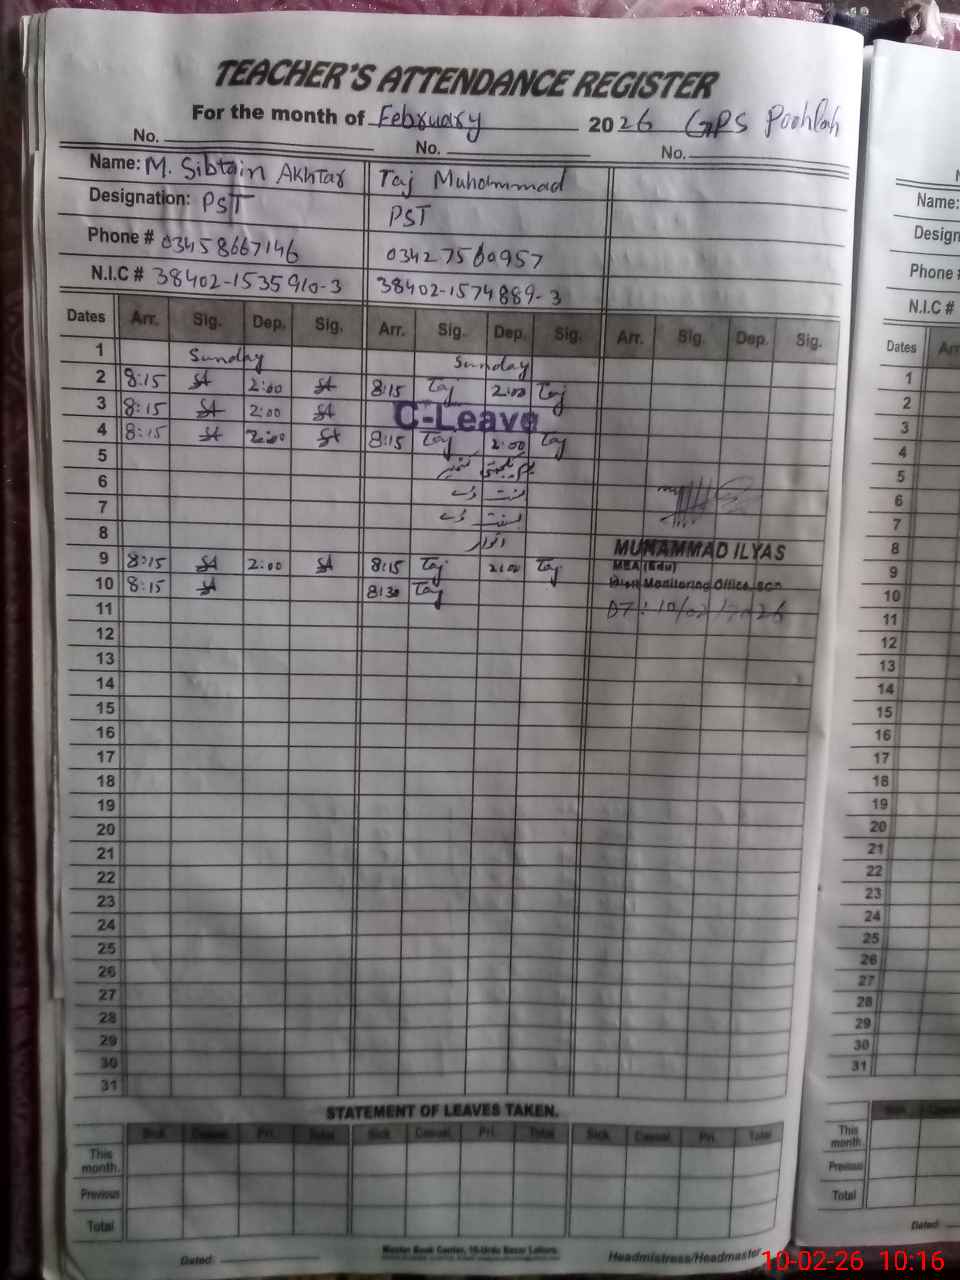 TEACHER'S ATTENDANCE REGISTER
For the month of February 2026 GPS Poohlah
No. No. No.
Name: M. Sibtain Akhtar Taj Muhammad
Designation: PST PST
Phone # 03458667146 03427560957
N.I.C # 38402-1535910-3 38402-1574889-3
Dates Arr. Sig. Dep. Sig. Arr. Sig. Dep. Sig. Arr. Sig. Dep. Sig.
1 Sunday Sunday
2 8:15 St 2:00 St 8:15 Taj 2:00 Taj
3 8:15 St 2:00 St C-Leave
4 8:15 St 2:00 St 8:15 Taj 2:00 Taj
5 یوم یکجہتی کشمیر
6 بسنت ڈے
7 بسنت ڈے
8 اتوار
9 8:15 St 2:00 St 8:15 Taj 2:00 Taj
10 8:15 St 8:30 Taj
MUHAMMAD ILYAS
MEA (Edu)
Distt Monitoring Office, SGD
DT: 10/02/2026
11
12
13
14
15
16
17
18
19
20
21
22
23
24
25
26
27
28
29
30
31
STATEMENT OF LEAVES TAKEN.
Sick Casual Pri. Total Sick Casual Pri. Total Sick Casual Pri. Total
This month.
Previous
Total
Dated: Master Book Center, 10-Urdu Bazar Lahore. Headmistress/Headmaster
Name:
Design
Phone #
N.I.C #
Dates Arr
1
2
3
4
5
6
7
8
9
10
11
12
13
14
15
16
17
18
19
20
21
22
23
24
25
26
27
28
29
30
31
This month
Previous
Total
Dated:
10-02-26 10:16